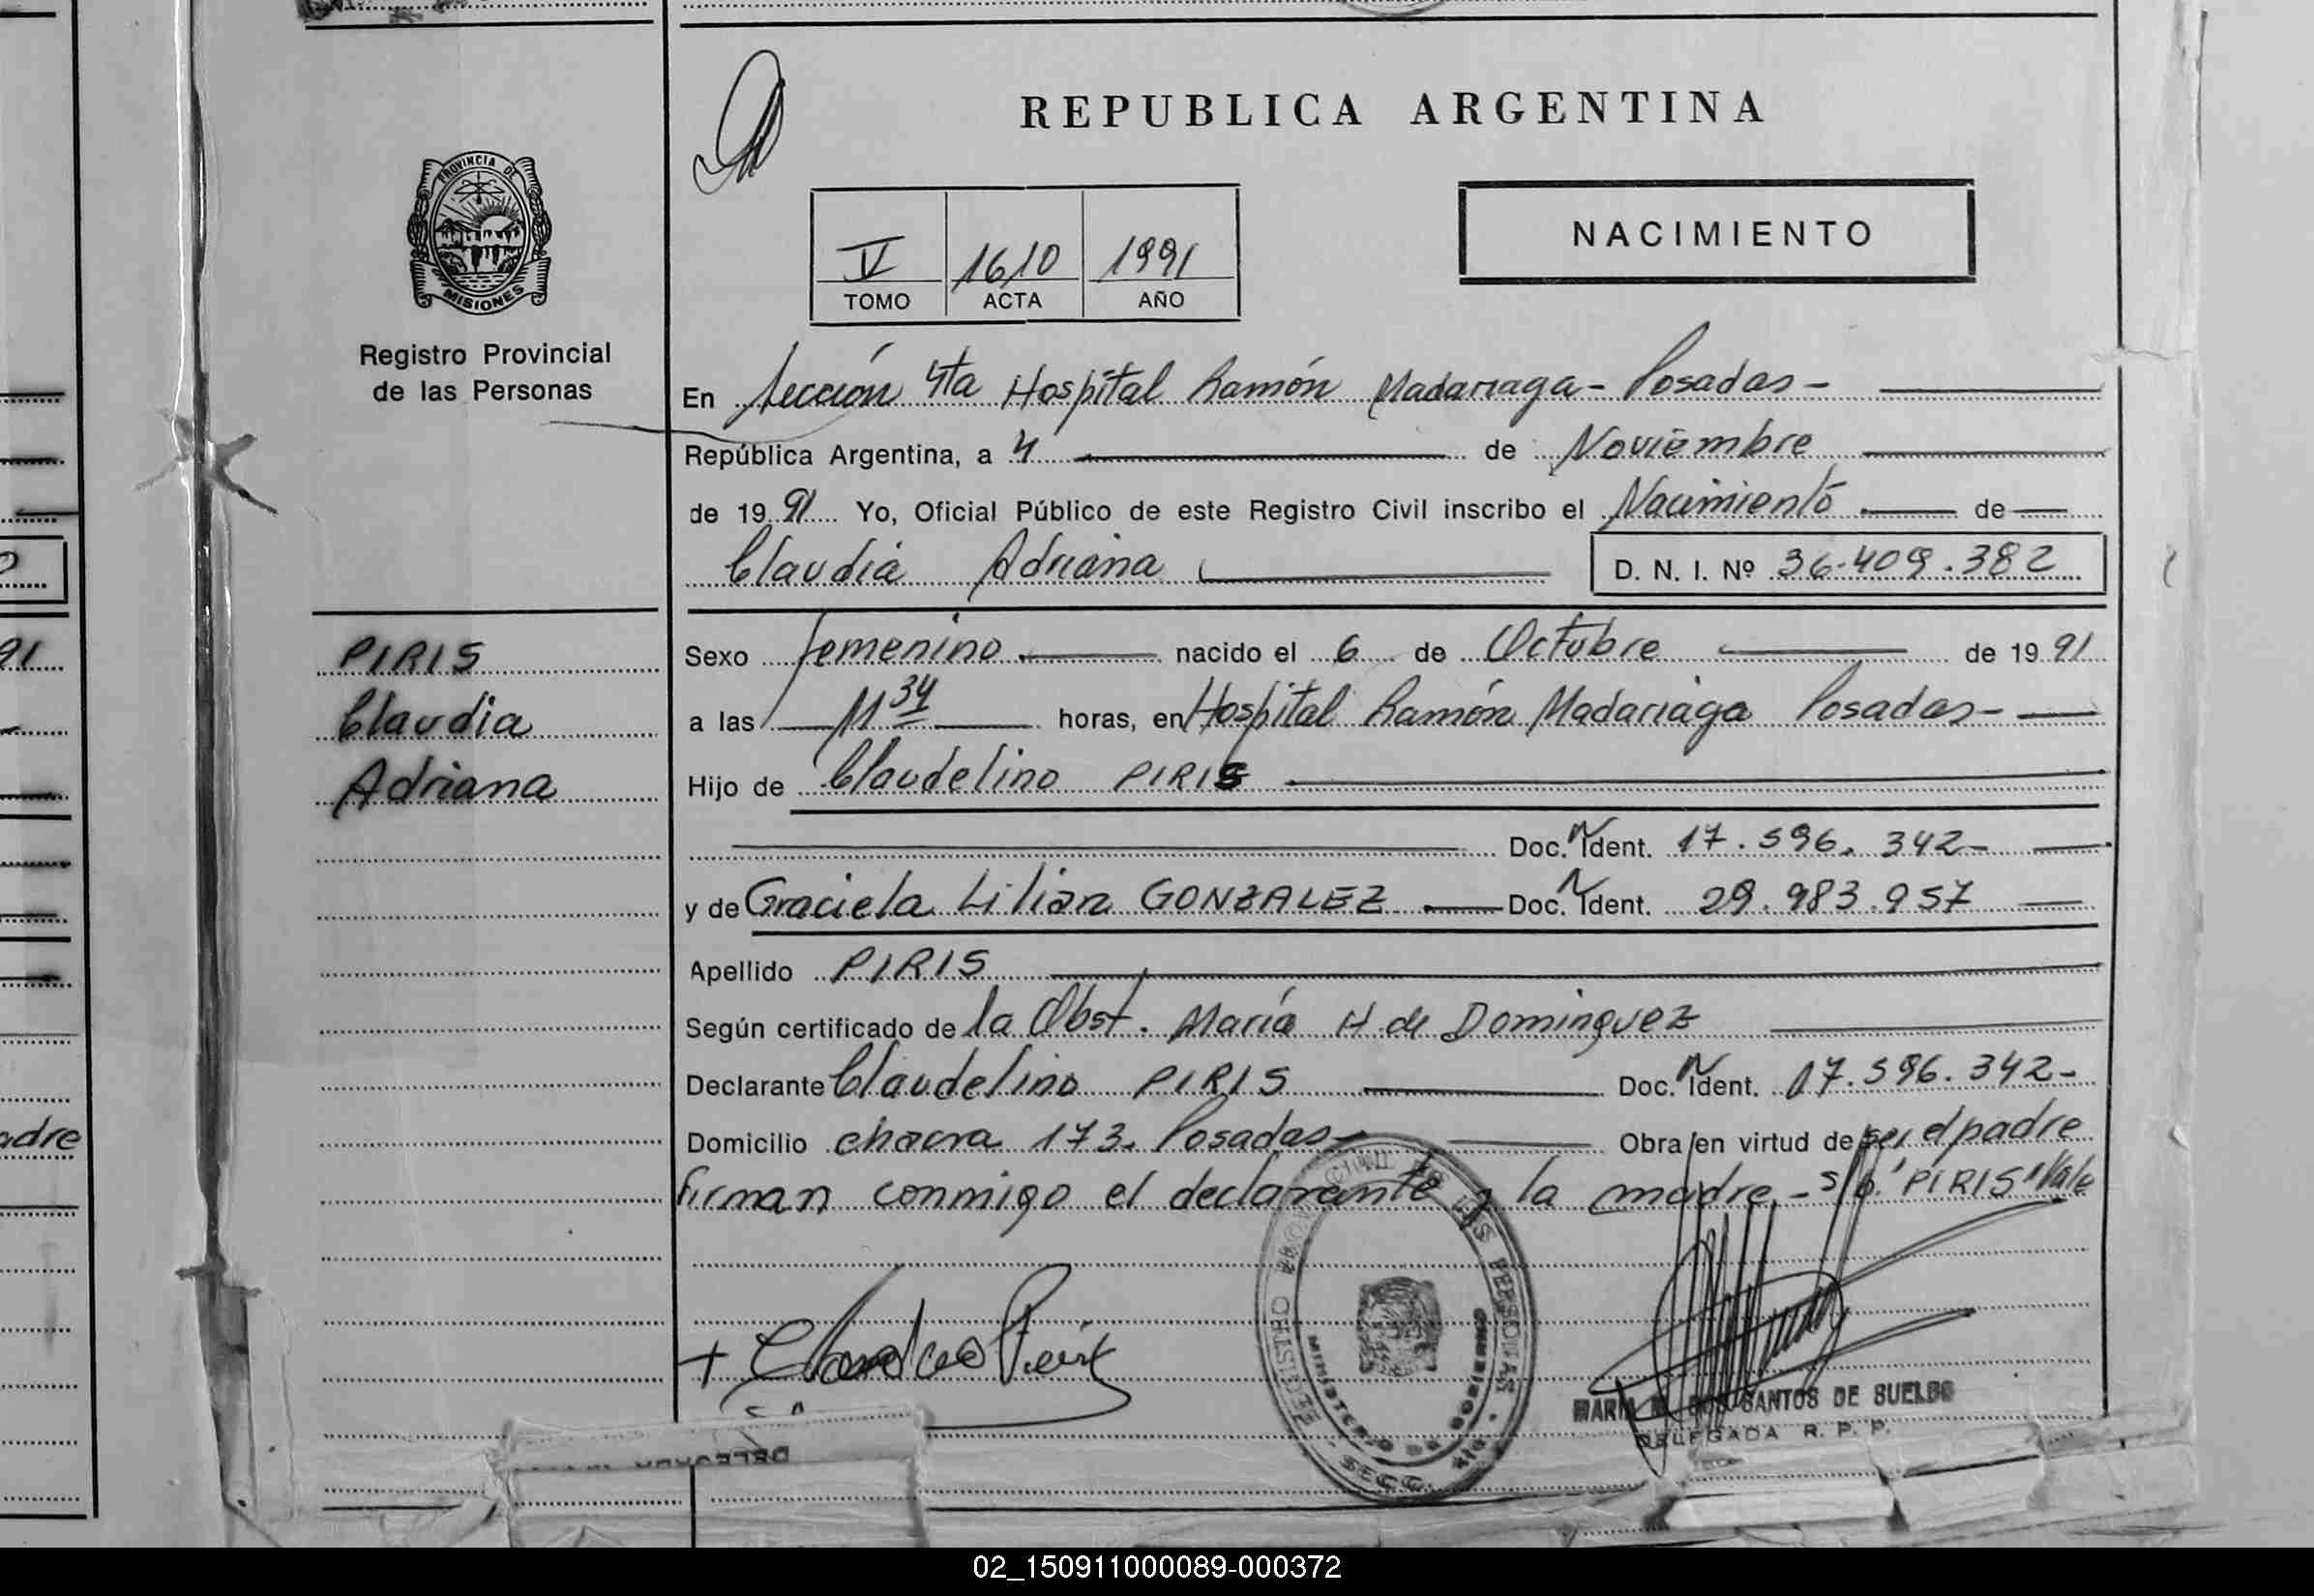 REPUBLICA ARGENTINA
PROVINCIA DE
MISIONES
Registro Provincial
de las Personas
V 1610 1991
TOMO ACTA AÑO
NACIMIENTO
En Sección 4ta Hospital Ramón Madariaga - Posadas -
República Argentina, a 4 de Noviembre
de 19 91 Yo, Oficial Público de este Registro Civil inscribo el Nacimiento de
Claudia Adriana D. N. I. Nº 36.409.382
PIRIS
Claudia
Adriana
Sexo femenino nacido el 6 de Octubre de 19 91
a las 11 34 horas, en Hospital Ramón Madariaga Posadas -
Hijo de Claudelino PIRIS
Doc. N Ident. 17.596.342 -
y de Graciela Lilian GONZALEZ Doc. N Ident. 29.983.957
Apellido PIRIS
Según certificado de la Obst. María H. de Dominguez
Declarante Claudelino PIRIS Doc. N Ident. 17.596.342 -
Domicilio chacra 173. Posadas - Obra en virtud de ser el padre
firman conmigo el declarante y la madre - s/b. "PIRIS" Vale
REGISTRO PROVINCIAL DE LAS PERSONAS
MINISTERIO DE GOBIERNO
SECC.
MARIA DOS SANTOS DE SUELDO
DELEGADA R. P. P.
91
adre
02_150911000089-000372